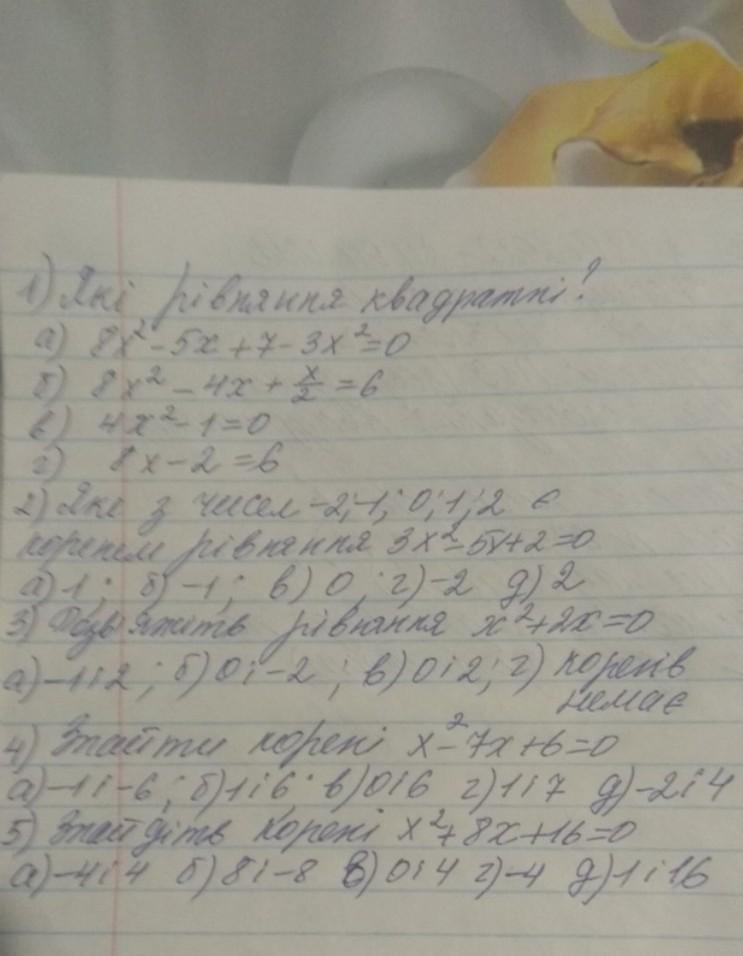 1) Які рівняння квадратні?
а) 8x² - 5x + 7 - 3x² = 0
б) 8x² - 4x + x/2 = 6
в) 4x² - 1 = 0
г) 8x - 2 = 6
2) Які з чисел -2; -1; 0; 1; 2 є
коренем рівняння 3x² - 5x + 2 = 0
а) 1; б) -1; в) 0; г) -2 д) 2
3) Розв'яжіть рівняння x² + 2x = 0
а) -1 і 2; б) 0 і -2; в) 0 і 2; г) коренів
немає
4) Знайти корені x² - 7x + 6 = 0
а) -1 і -6; б) 1 і 6; в) 0 і 6 г) 1 і 7 д) -2 і 4
5) Знайдіть корені x² + 8x + 16 = 0
а) -4 і 4 б) 8 і -8 в) 0 і 4 г) -4 д) 1 і 16